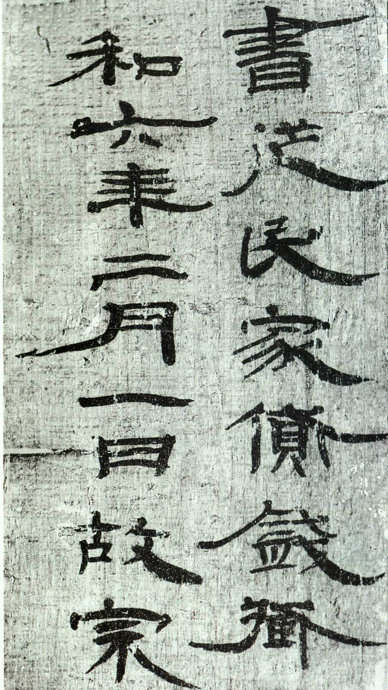 書從民家貸
和六年二月一日故宗